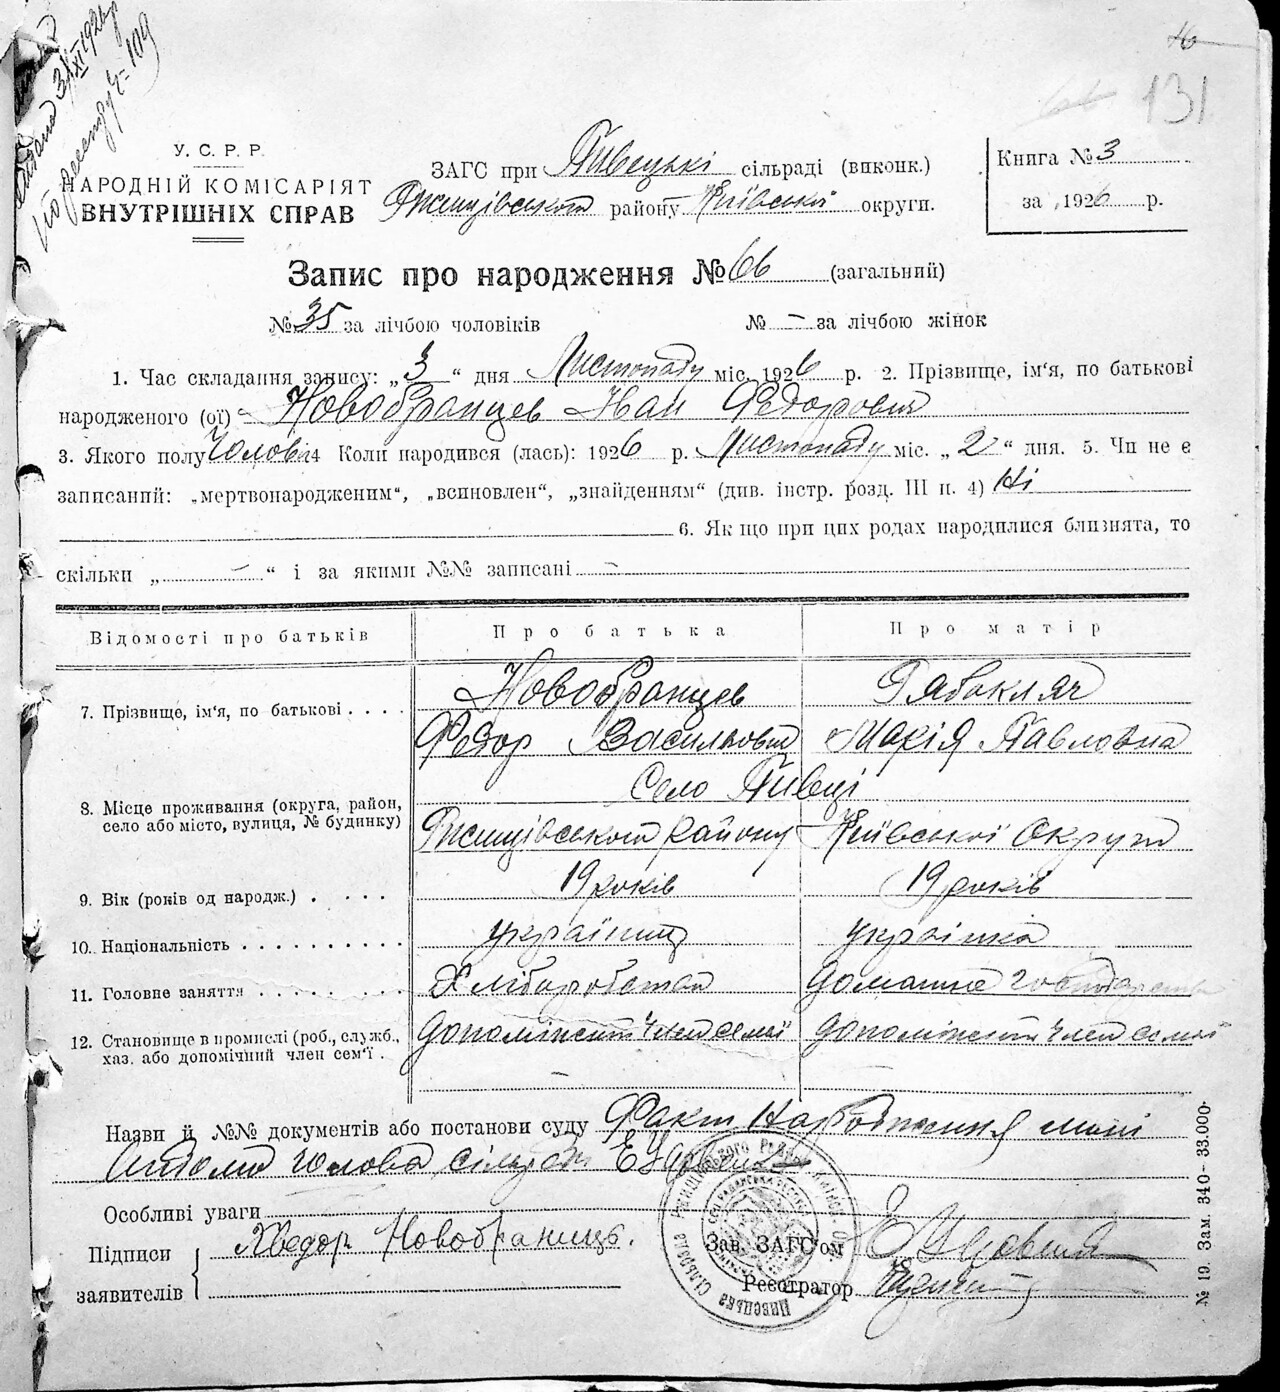 131
У. С. Р. Р.
НАРОДНІЙ КОМІСАРІЯТ
ВНУТРІШНІХ СПРАВ
ЗАГС при Пивецькі сільраді (виконк.)
Ржищівського району Київської округи.
Книга № 3
за 1926 р.
Запис про народження № 66 (загальний)
№ 35 за лічбою чоловіків № - за лічбою жінок
1. Час складання запису: „3“ дня Листопаду міс. 1926 р. 2. Прізвище, ім'я, по батькові
народженого (ої) Новобранцев Иван Федорович
3. Якого полу Чолові 4 Коли народився (лась): 1926 р. Листопаду міс. „2“ дня. 5. Чи не є
записаний: „мертвонародженим“, „всиновлен“, „знайденням“ (див. інстр. розд. III п. 4) Ні
6. Як що при цих родах народилися близнята, то
скільки „ - “ і за якими №№ записані -
Відомості про батьків Про батька Про матір
7. Прізвище, ім'я, по батькові . . . .
Новобранцев Рябокляч
Федор Васильович Марія Павловна
8. Місце проживання (округа, район,
село або місто, вулиця, № будинку)
Село Пивці
Ржищівського Району Київської Округи
9. Вік (років од народж.) . . . . . 19 років 19 років
10. Національність . . . . . . . . . . українец українка
11. Головне заняття . . . . . . . . Хліборобство домашнє господарство
12. Становище в промислі (роб., служб.,
хаз. або допомічний член сем'ї .
допоміжний член семьї допоміжний член семьї
Назви й №№ документів або постанови суду Факт Народження мині
голова сільради
Особливі уваги
Підписи
заявителів
Хведор Новобранець.
Зав. ЗАГС'ом
Реєстратор
№ 19. Зам. 340—33.000